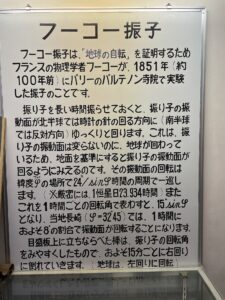 フーコー振子
フーコー振子は、「地球の自転」を証明するため
フランスの物理学者フーコーが、1851年(約
100年前)にパリーのパルテノン寺院で実験
した振子のことです。
振り子を長い時間振らせておくと、振り子の振
動面が北半球では時計の針の回る方向に(南半球
では反対方向)ゆっくりと回ります。これは、振
り子の振動面は変らないのに、地球が回わって
いるため、地面を基準にすると振り子の振動面が
回るようにみえるのです。その振動面の回転は
緯度φの場所で24/sinφ時間の周期で一巡し
ます。(※厳密には1恒星日23.934時間) また
これを1時間ごとの回転角で表わすと、15°sinφ
となり、当地長崎(φ=32°45′)では、1時間に
およそ8°の割合で振動面が回転することになります。
目盛板上に立ちならべた棒は、振り子の回転角
をみやすくしたもので、およそ15分ごとに右回り
に倒れていきます。 地球は、左回りに回転